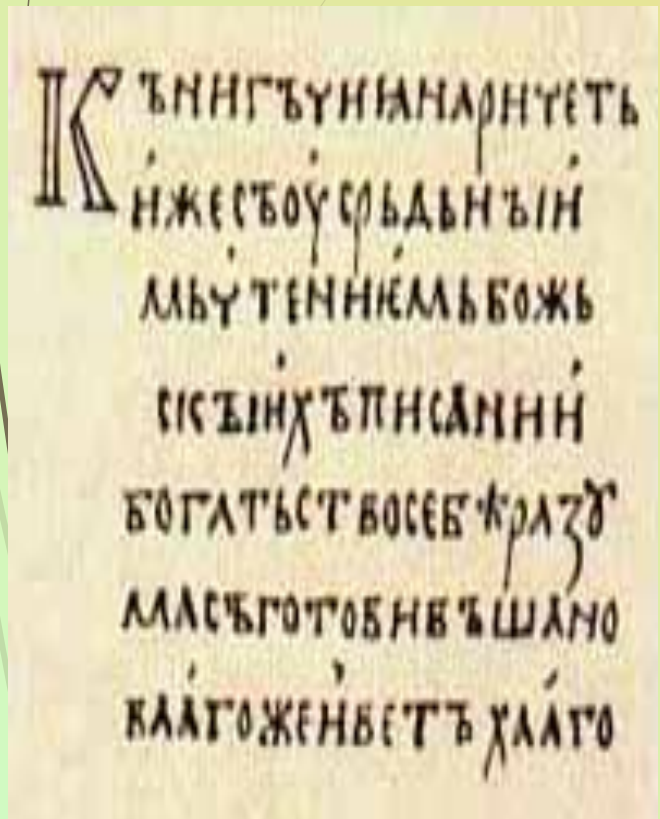 КЪНИГЪЧИꙖНАРИЧЕТЬ
И҆ЖЕСЪОУ҆СРЬДЬНЪІИ҆
МЬЧТЕНИѤМЬБОЖЬ
СКЪІИ҆ХЪПИСАНИИ҆
БОГАТЬСТВОСЕБѢРАЗꙊ
МАСЪГОТОВИВЪШАНО
ВАА҆ГОЖЕИ҆ВЕТЪХАА҆ГО